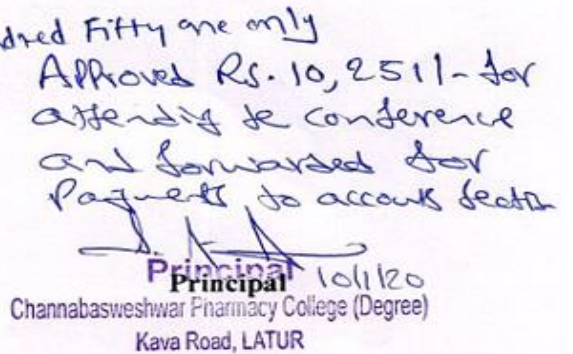 dred Fifty one only
Approved Rs. 10,251/- for
attending te conference
and forwarded for
Payment to accouts Sectin
Principal
Principal 10/1/20
Channabasweshwar Pharmacy College (Degree)
Kava Road, LATUR